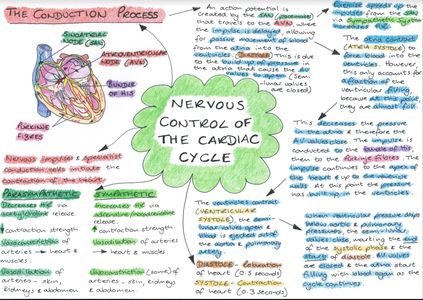 THE CONDUCTION PROCESS
SINOATRIAL
NODE (SAN)
ATRIOVENTRICULAR
NODE (AVN)
BUNDLE
OF HIS
PURKINE
FIBRES
Nervous impulses & specialist
conduction cells initiate the
contraction of the heart
PARASYMPATHETIC
Decreases HR via
acetylcholine release.
↓ contraction strength.
Vasoconstriction of
arteries → heart &
muscles.
Vasodilation of
arteries - skin,
kidneys & abdomen
SYMPATHETIC
Increases HR via
release.
↑ contraction strength
Vasodilation of arteries
→ heart & muscles
Vasoconstriction (some) of
arteries - skin, kidneys
& abdomen.
NERVOUS
CONTROL OF
THE CARDIAC
CYCLE
An action potential is
created by the SAN (pacemaker)
that travels to the AVN where
the impulse is delayed, allowing
for passive movement of blood
from the atria into the
ventricles (DIASTOLE) This is due
to the build up of pressure in
the atria that cause the AV
valves to open (Semi
lunar valves
are closed)
Exercise speeds up the
impulses from the SAN
via Sympathetic System
increases HR
The atria contract
(ATRIA SYSTOLE) to
force blood into the
ventricles. However,
this only accounts for
a fraction of the
ventricular filling,
because at this point, they
are almost full.
This decreases the pressure
in the atria & therefore the
AV valves close. The impulse is
conducted to the bundle of His
then to the Purkinje fibres. The
impulse continues to the apex of
the heart & up to the ventricle
walls. At this point the pressure
has built up in the ventricles.
The ventricles contract
(VENTRICULAR
SYSTOLE), the semi-
lunar valves open &
blood is ejected out of
the aorta & pulmonary
artery.
DIASTOLE - Relaxation
of heart (0.5 seconds)
SYSTOLE - Contraction
of heart (0.3 seconds)
When ventricular pressure drops
below aortic & pulmonary
pressures, the semi-lunar
valves close, marking the end
of the systolic phase & the
start of diastole. AV valves
are closed & the atria start
filling with blood again as the
cycle continues.